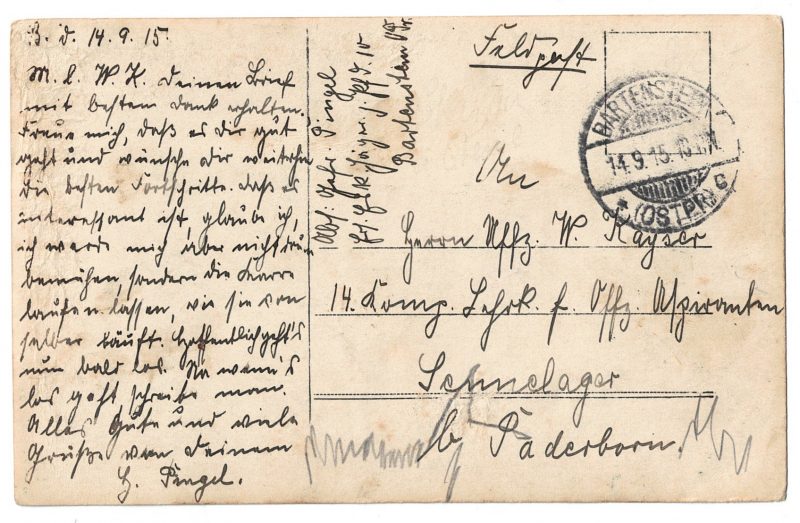 B. d. 14.9.15.
M. l. W. K. Deinen Brief
mit bestem Dank erhalten.
Freue mich, daß es Dir gut
geht und wünsche dir weiterhin
die besten Fortschritte. daß es
interessant ist, glaube ich,
ich werde mich aber nicht drum
bemühen, sondern die Karre
laufen lassen, wie sie von
selber läuft. Hoffentlich geht's
nun bald los. Na wenn's
los geht schreibe man.
Alles Gute und viele
Grüße von Deinem
H. Pingel.
Abs: Gefr. Pingel
Jäger z. Pfd. 10
Bartenstein Ostpr.
Feldpost
BARTENSTEIN
14.9.15.
* (OSTPR) c
An
Herrn Uffz. W. Kayser
14. Komp. Lehrk. f. Offz. Aspiranten
Sennelager
b/ Paderborn.